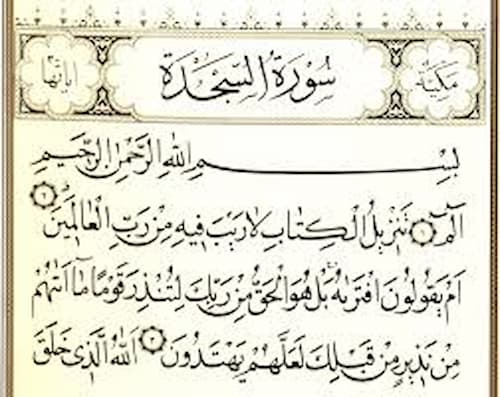 مكية سورة السجدة اياتها ٣٠
بسم الله الرحمن الرحيم
الٓمٓ ۝١ تَنْزِيلُ الْكِتَابِ لَا رَيْبَ فِيهِ مِنْ رَبِّ الْعَالَمِينَ ۝٢
اَمْ يَقُولُونَ افْتَرٰيهُ بَلْ هُوَ الْحَقُّ مِنْ رَبِّكَ لِتُنْذِرَ قَوْمًا مَٓا اَتٰيهُمْ
مِنْ نَذِيرٍ مِنْ قَبْلِكَ لَعَلَّهُمْ يَهْتَدُونَ ۝٣ اَللّٰهُ الَّذِى خَلَقَ